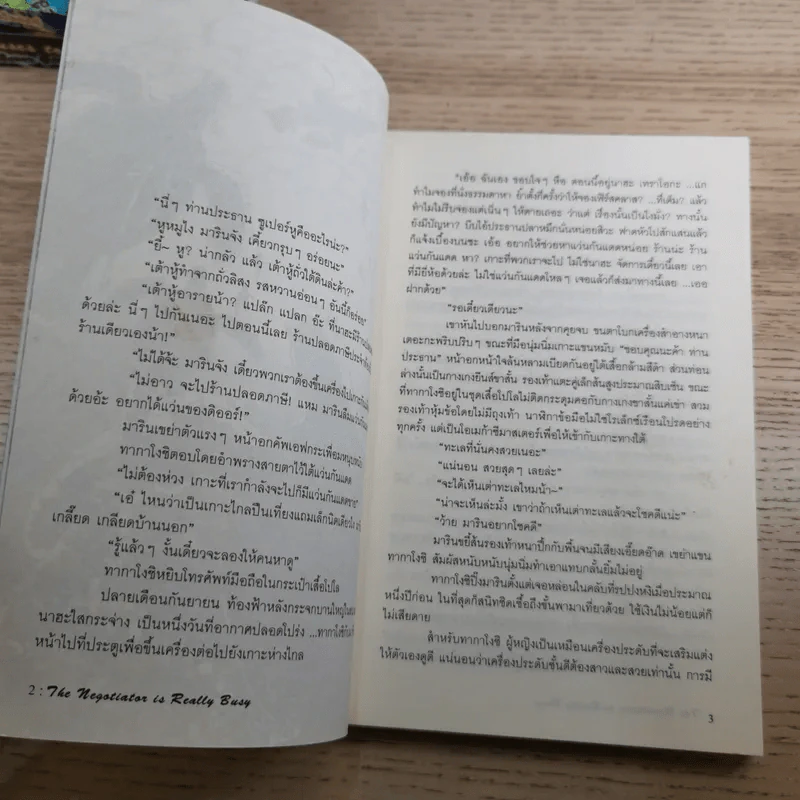 "นี่ๆ ท่านประธาน ซูเปอร์หูคืออะไรน่ะ?"
"หูหมูไง มารินจัง เคี้ยวกรุบๆ อร่อยนะ"
"ยี้~ หู? น่ากลัว แล้ว เต้าหู้ถั่วใต้ดินล่ะค้า?"
"เต้าหู้ทำจากถั่วลิสง รสหวานอ่อนๆ อันนี้ก็อร่อย"
"เต้าหู้อารายน้า? แปล๊ก แปลก อ๊ะ ที่นาฮะมีร้าน
ด้วยล่ะ นี่ๆ ไปกันเนอะ ไปตอนนี้เลย ร้านปลอดภาษีประจำ
ร้านเดียวเองน้า!"
"ไม่ได้จ้ะ มารินจัง เดี๋ยวพวกเราต้องขึ้นเครื่องไปเกาะ
"ไม่อาว จะไปร้านปลอดภาษี! แหม มารินลืมแว่น
ด้วยอ้ะ อยากได้แว่นของดิออร์!"
มารินเขย่าตัวแรงๆ หน้าอกคัพเอฟกระเพื่อม
ทากาโงชิตอบโดยอำพรางสายตาไว้ใต้แว่นกันแดด
"ไม่ต้องห่วง เกาะที่เรากำลังจะไปก็มีแว่นกันแดดขาย"
"เอ๋ ไหนว่าเป็นเกาะไกลปืนเที่ยงแถมเล็กนิดเดียวไง
เกลี๊ยด เกลียดบ้านนอก"
"รู้แล้วๆ งั้นเดี๋ยวจะลองให้คนหาดู"
ทากาโงชิหยิบโทรศัพท์มือถือในกระเป๋าเสื้อโปโล
ปลายเดือนกันยายน ท้องฟ้าหลังกระจกบานใหญ่
นาฮะใสกระจ่าง เป็นหนึ่งวันที่อากาศปลอดโปร่ง ...ทากาโงชิ
หน้าไปที่ประตูเพื่อขึ้นเครื่องต่อไปยังเกาะห่างไกล
2 : The Negotiator is Really Busy
"เอ้อ ฉันเอง ขอบใจๆ หือ ตอนนี้อยู่นาฮะ เทราโอกะ ...แก
ทำไมจองที่นั่งธรรมดาหา ย้ำตั้งกี่ครั้งว่าให้จองเฟิร์สคลาส? ...ที่เต็ม? แล้ว
ทำไมไม่รีบจองแต่เนิ่นๆ ให้ตายเถอะ ว่าแต่ เรื่องนั้นเป็นไงมั่ง? ทางนั้น
ยังมีปัญหา? บีบไอ้ประธานปลาหมึกนั่นหน่อยสิวะ ฟาดหัวไปสักแสนแล้ว
ก็แจ้งเบื้องบนซะ เอ้อ อยากให้ช่วยหาแว่นกันแดดหน่อย ร้านน่ะ ร้าน
แว่นกันแดด หา? เกาะที่พวกเราจะไป ไม่ใช่นาฮะ จัดการเดี๋ยวนี้เลย เอา
ที่มียี่ห้อด้วยล่ะ ไม่ใช่แว่นกันแดดโหลๆ เจอแล้วก็ส่งมาทางนี้เลย ...เออ
ฝากด้วย"
"รอเดี๋ยวเดียวนะ"
เขาหันไปบอกมารินหลังจากคุยจบ ขนตาโบกเครื่องสำอางหนา
เตอะกะพริบปริบๆ ขณะที่มือนุ่มนิ่มเกาะแขนหมับ "ขอบคุณนะค้า ท่าน
ประธาน" หน้าอกหน้าใจล้นหลามเบียดกันอยู่ใต้เสื้อกล้ามสีดำ ส่วนท่อน
ล่างนั้นเป็นกางเกงยีนส์ขาสั้น รองเท้าแตะคู่เล็กส้นสูงประมาณสิบเซ็น ขณะ
ที่ทากาโงชิอยู่ในชุดเสื้อโปโลไม่ติดกระดุมคอกับกางเกงขาสั้นแค่เข่า สวม
รองเท้าหุ้มข้อโดยไม่มีถุงเท้า นาฬิกาข้อมือไม่ใช่โรเล็กซ์เรือนโปรดอย่าง
ทุกครั้ง แต่เป็นโอเมก้าซีมาสเตอร์เพื่อให้เข้ากับเกาะทางใต้
"ทะเลที่นั่นคงสวยเนอะ"
"แน่นอน สวยสุดๆ เลยล่ะ"
"จะได้เห็นเต่าทะเลไหมน้า~"
"น่าจะเห็นล่ะมั้ง เขาว่าถ้าเห็นเต่าทะเลแล้วจะโชคดีแน่ะ"
"ว้าย มารินอยากโชคดี"
มารินขยี้ส้นรองเท้าหนาปึ้กกับพื้นจนมีเสียงเอี๊ยดอ๊าด เขย่าแขน
ทากาโงชิ สัมผัสหนับหนับนุ่มนิ่มทำเอาแทบกลั้นยิ้มไม่อยู่
ทากาโงชิปิ๊งมารินตั้งแต่เจอหล่อนในคลับที่รปปงหงิเมื่อประมาณ
หนึ่งปีก่อน ในที่สุดก็สนิทชิดเชื้อถึงขั้นพามาเที่ยวด้วย ใช้เงินไม่น้อยแต่ก็
ไม่เสียดาย
สำหรับทากาโงชิ ผู้หญิงเป็นเหมือนเครื่องประดับที่จะเสริมแต่ง
ให้ตัวเองดูดี แน่นอนว่าเครื่องประดับชั้นดีต้องสาวและสวยเท่านั้น การมี
3